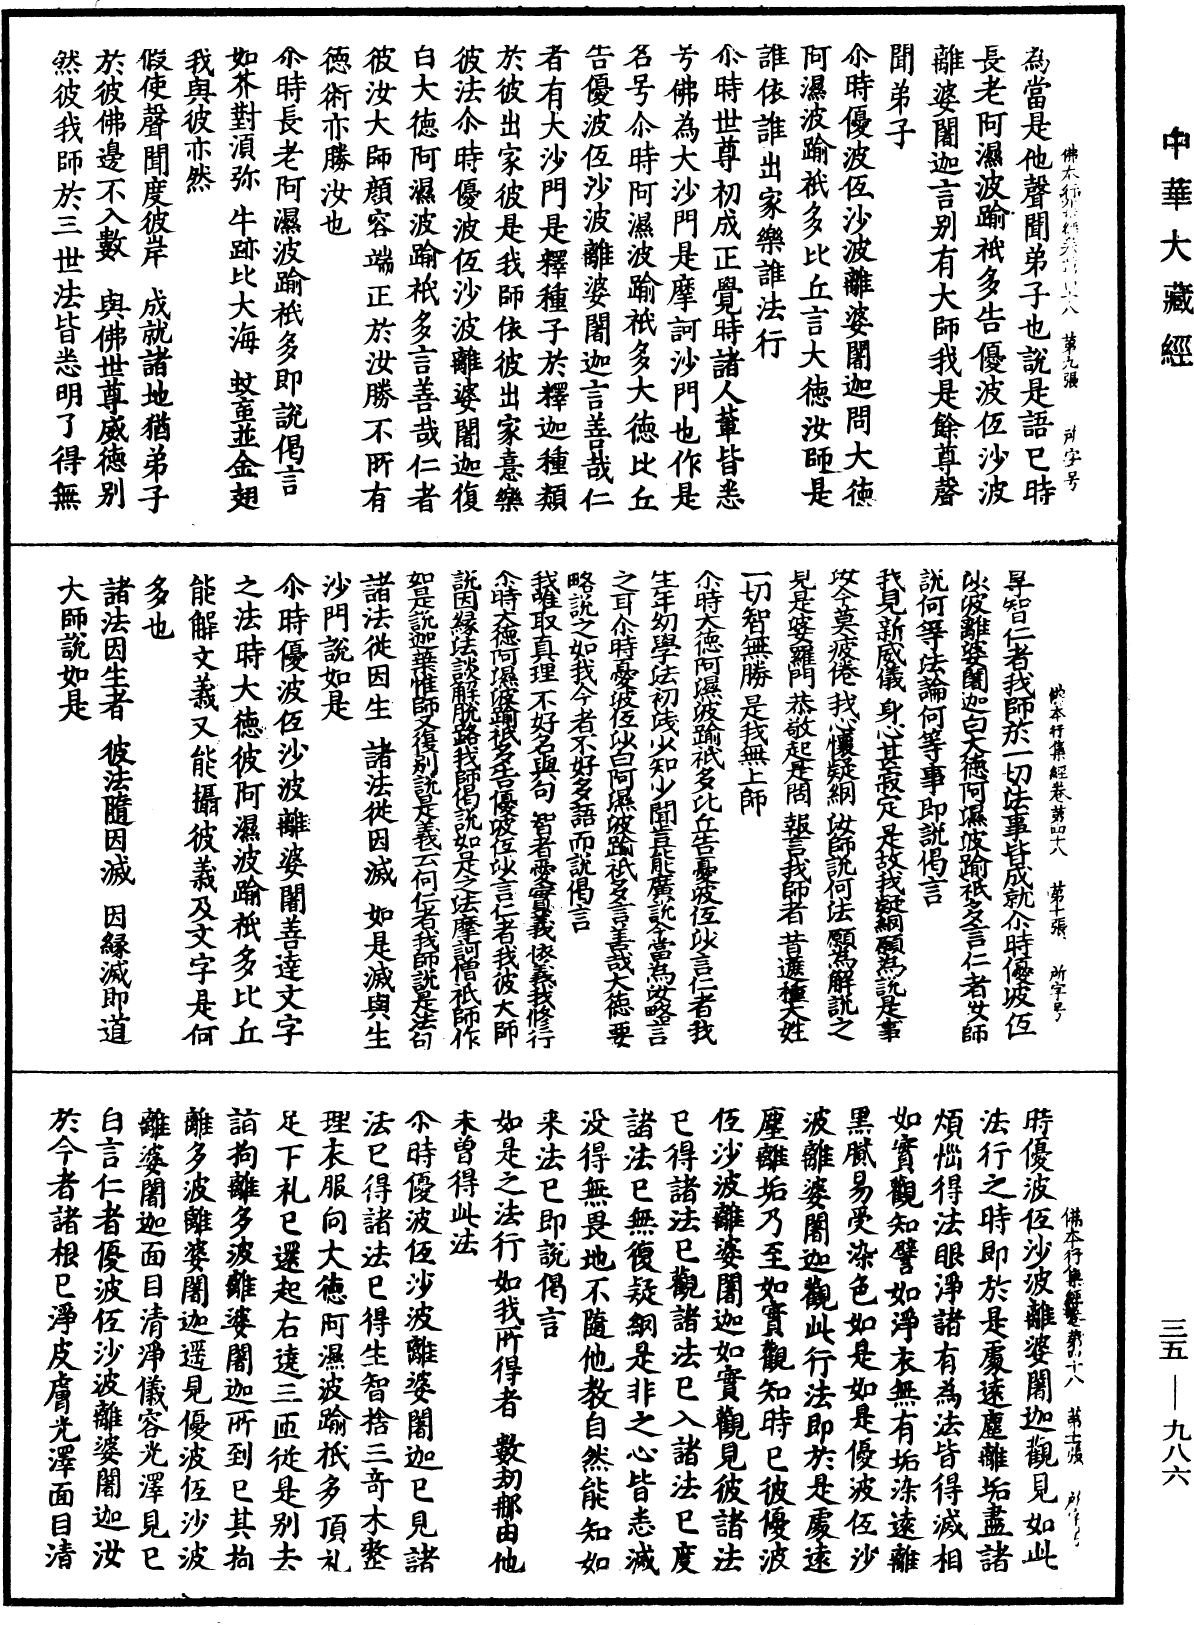 中華大藏經
佛本行集經卷第四十八 第九張 所字号
為當是他聲聞弟子也說是語已時
長老阿濕波踰祇多告優波低沙波
離婆闍迦言別有大師我是餘尊聲
聞弟子
尒時優波低沙波離婆闍迦問大德
阿濕波踰祇多比丘言大德汝師是
誰依誰出家樂誰法行
尒時世尊初成正覺時諸人輩皆悉
号佛為大沙門是摩訶沙門也作是
名号尒時阿濕波踰祇多大德比丘
告優波低沙波離婆闍迦言善哉仁
者有大沙門是釋種子於釋迦種類
於彼出家彼是我師依彼出家意樂
彼法尒時優波低沙波離婆闍迦復
白大德阿濕波踰祇多言善哉仁者
彼汝大師顏容端正於汝勝不所有
德術亦勝汝也
尒時長老阿濕波踰祇多即說偈言
如芥對須弥 牛跡比大海 蚊䖟並金翅
我與彼亦然
假使聲聞度彼岸 成就諸地猶弟子
於彼佛邊不入數 與佛世尊威德別
然彼我師於三世法皆悉明了得無
佛本行集經卷第四十八 第十張 所字号
导智仁者我師於一切法事皆成就尒時優波低
沙波離婆闍迦白大德阿濕波踰祇多言仁者汝師
說何等法論何等事即說偈言
我見新威儀 身心甚寂定 是故我疑網 願為說是事
汝今莫疲倦 我心懷疑網 汝師說何法 願為解說之
見是婆羅門 恭敬起是問 報言我師者 昔遮種大姓
一切智無勝 是我無上師
尒時大德阿濕波踰祇多比丘告憂波低沙言仁者我
生年幼學法初淺少知少聞豈能廣說今當為汝略言
之耳尒時憂波低沙白阿濕波踰祇多言善哉大德要
略說之如我今者不好多語而說偈言
我唯取真理 不好名與句 智者愛實義 依義我修行
尒時大德阿濕波踰祇多告優波低沙言仁者我彼大師
說因緣法談解脫路我師偈說如是之法摩訶僧祇師作
如是說迦葉惟師又復別說是義云何仁者我師說是法句
諸法從因生 諸法從因滅 如是滅與生
沙門說如是
尒時優波低沙波離婆闍善達文字
之法時大德彼阿濕波踰祇多比丘
能解文義又能攝彼義及文字是何
多也
諸法因生者 彼法隨因滅 因緣滅即道
大師說如是
佛本行集經卷第四十八 第十一張 所字号
時優波低沙波離婆闍迦觀見如此
法行之時即於是處遠塵離垢盡諸
煩惱得法眼淨諸有為法皆得滅相
如實觀知譬如淨衣無有垢染遠離
黑膩易受染色如是如是優波低沙
波離婆闍迦觀此行法即於是處遠
塵離垢乃至如實觀知時已彼優波
低沙波離婆闍迦如實觀見彼諸法
已得諸法已觀諸法已入諸法已度
諸法已無復疑網是非之心皆悉滅
没得無畏地不隨他教自然能知如
来法已即說偈言
如是之法行 如我所得者 數劫那由他
未曾得此法
尒時優波低沙波離婆闍迦已見諸
法已得諸法已得生智捨三奇木整
理衣服向大德阿濕波踰祇多頂礼
足下礼已還起右遶三匝從是別去
詣拘離多波離婆闍迦所到已其拘
離多波離婆闍迦遥見優波低沙波
離婆闍迦面目清淨儀容光澤見已
白言仁者優波低沙波離婆闍迦汝
於今者諸根已淨皮膚光澤面目清
三五—九八六